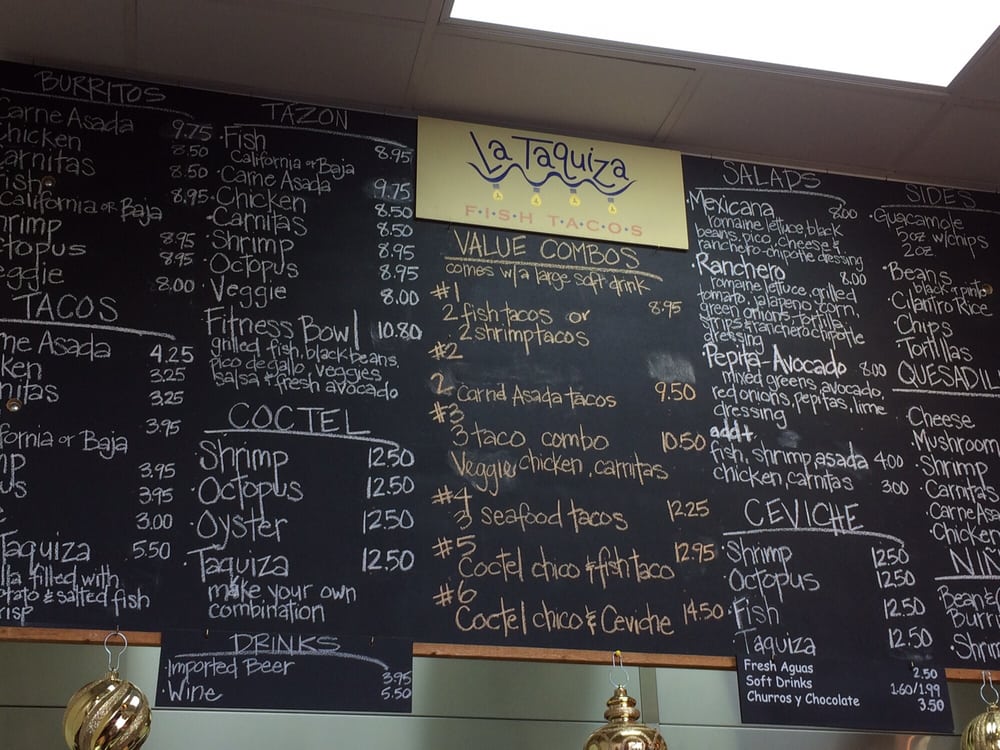 BURRITOS
Carne Asada 9.75
Chicken 8.50
Carnitas 8.50
Fish 8.95
California or Baja
Shrimp 8.95
Octopus 8.95
Veggie 8.00
TACOS
me Asada 4.25
ken 3.25
nitas 3.25
fornia or Baja 3.95
mp 3.95
us 3.95
e 3.00
Taquiza 5.50
lla filled with
otato & salted fish
risp
TAZON
Fish 8.95
California or Baja
Carne Asada 9.75
Chicken 8.50
Carnitas 8.50
Shrimp 8.95
Octopus 8.95
Veggie 8.00
Fitness Bowl 10.80
grilled fish, black beans,
pico de gallo, veggies,
salsa & fresh avocado
COCTEL
Shrimp 12.50
Octopus 12.50
Oyster 12.50
Taquiza 12.50
make your own
combination
DRINKS
Imported Beer 3.95
Wine 5.50
La Taquiza
FISH TACOS
VALUE COMBOS
comes w/a large soft drink
#1 8.95
2 fish tacos or
2 shrimp tacos
#2
2 Carne Asada tacos 9.50
#3
3 taco combo 10.50
Veggie, chicken, carnitas
#4
3 seafood tacos 12.25
#5
Coctel chico & fish taco 12.95
#6
Coctel chico & Ceviche 14.50
SALADS
Mexicana 8.00
romaine lettuce, black
beans, pico, cheese &
ranchero-chipotle dressing
Ranchero 8.00
romaine lettuce, grilled
tomato, jalapeno, corn,
green onions, tortilla
strips & ranchero chipotle
dressing
Pepita-Avocado 8.00
mixed greens, avocado,
red onions, pepitas, lime
dressing
add+
fish, shrimp, asada 4.00
chicken, carnitas 3.00
CEVICHE
Shrimp 12.50
Octopus 12.50
Fish 12.50
Taquiza 12.50
Fresh Aguas 2.50
Soft Drinks 1.60/1.99
Churros y Chocolate 3.50
SIDES
Guacamole
5oz w/chips
2oz
Beans
black or pinto
Cilantro Rice
Chips
Tortillas
QUESADILL
Cheese
Mushroom
Shrimp
Carnitas
Carne Asa
Chicken
NIÑ
Bean & C
Burri
Shrim